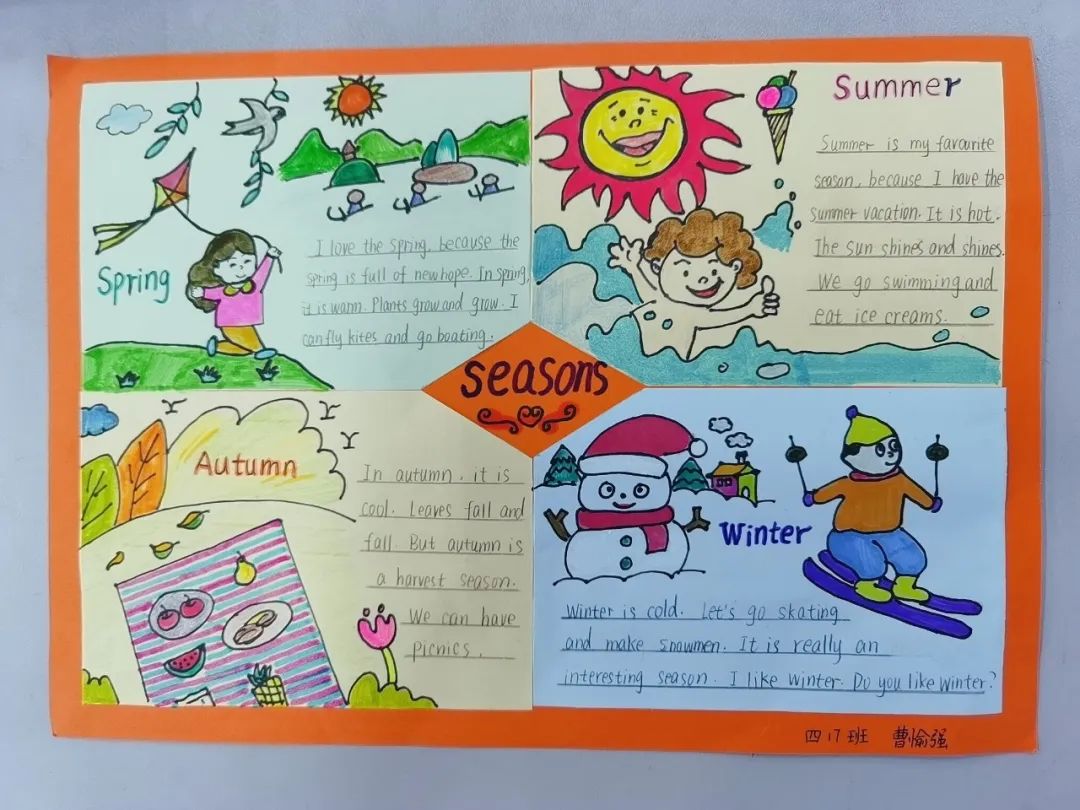 Spring
I love the spring, because the
spring is full of new hope. In spring,
it is warm. Plants grow and grow. I
can fly kites and go boating.
Summer
Summer is my favourite
season, because I have the
summer vacation. It is hot.
The sun shines and shines.
We go swimming and
eat ice creams.
seasons
Autumn
In autumn, it is
cool. Leaves fall and
fall. But autumn is
a harvest season.
We can have
picnics.
Winter
Winter is cold. Let's go skating
and make snowmen. It is really an
interesting season. I like winter. Do you like winter?
四17班 曹愉强